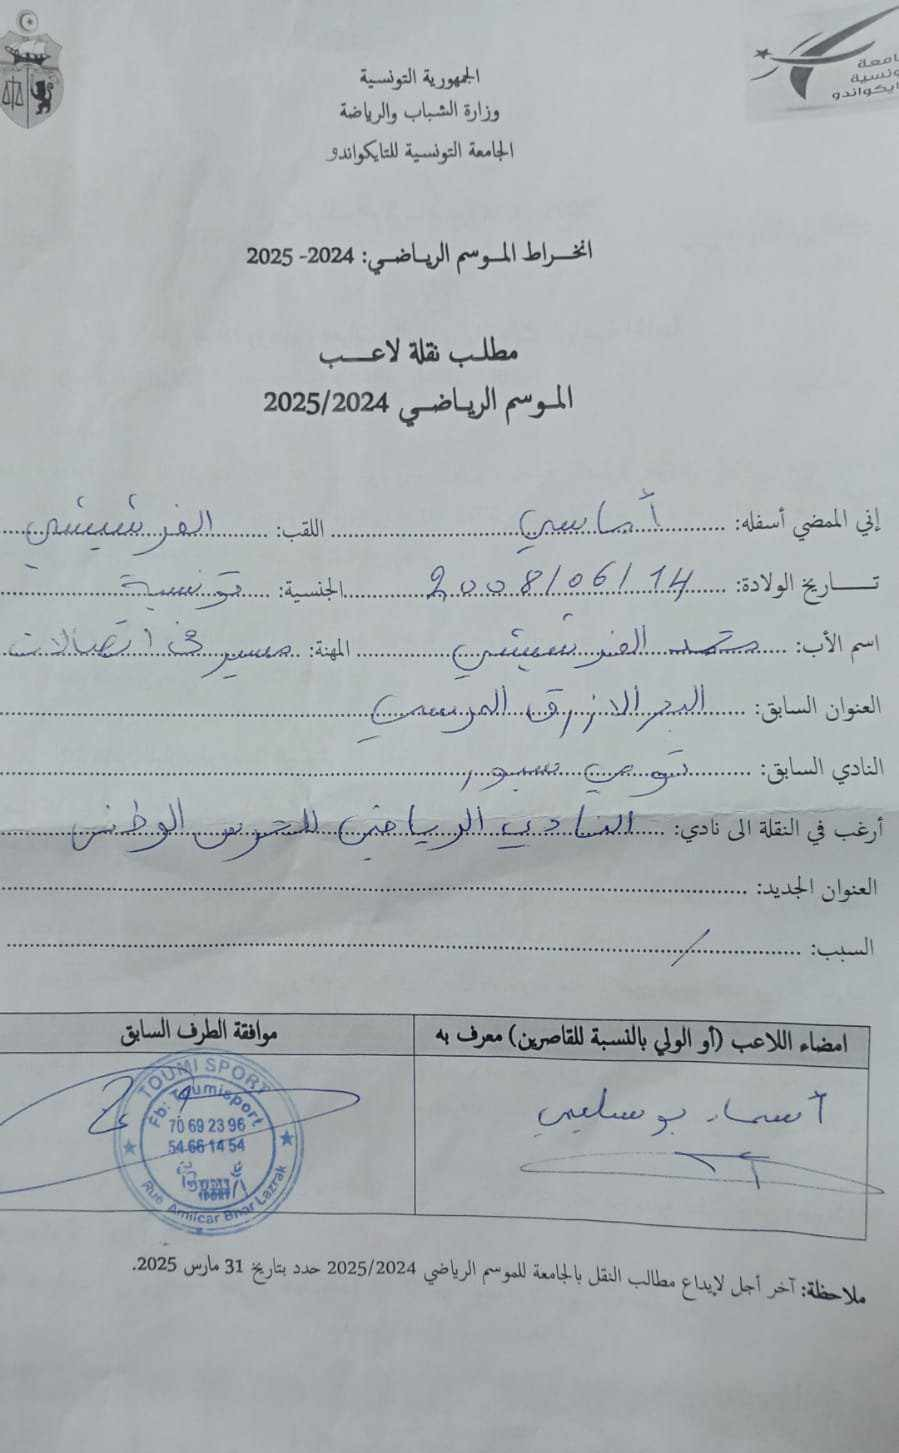 الجمهورية التونسية
وزارة الشباب والرياضة
الجامعة التونسية للتايكواندو
انخراط الموسم الرياضي: 2024- 2025
مطلب نقلة لاعب
الموسم الرياضي 2025/2024
إني الممضي أسفله: أماسي اللقب: الفرشيشي
تاريخ الولادة: 2008/06/14 الجنسية: تونسية
اسم الأب: محمد الفرشيشي المهنة: مسير في اتصالات
العنوان السابق: البحر الازرق المرسى
النادي السابق: تومي سبور
أرغب في النقلة الى نادي: النادي الرياضي للحرس الوطني
العنوان الجديد:
السبب: /
امضاء اللاعب (أو الولي بالنسبة للقاصرين) معرف به
موافقة الطرف السابق
أسماء بوسليمي
TOUMI SPORT
Fb: Toumisport
70 69 23 96
54 66 14 54
Rue Amilcar Bhar Lazrak
ملاحظة: آخر أجل لإيداع مطالب النقل بالجامعة للموسم الرياضي 2025/2024 حدد بتاريخ 31 مارس 2025.